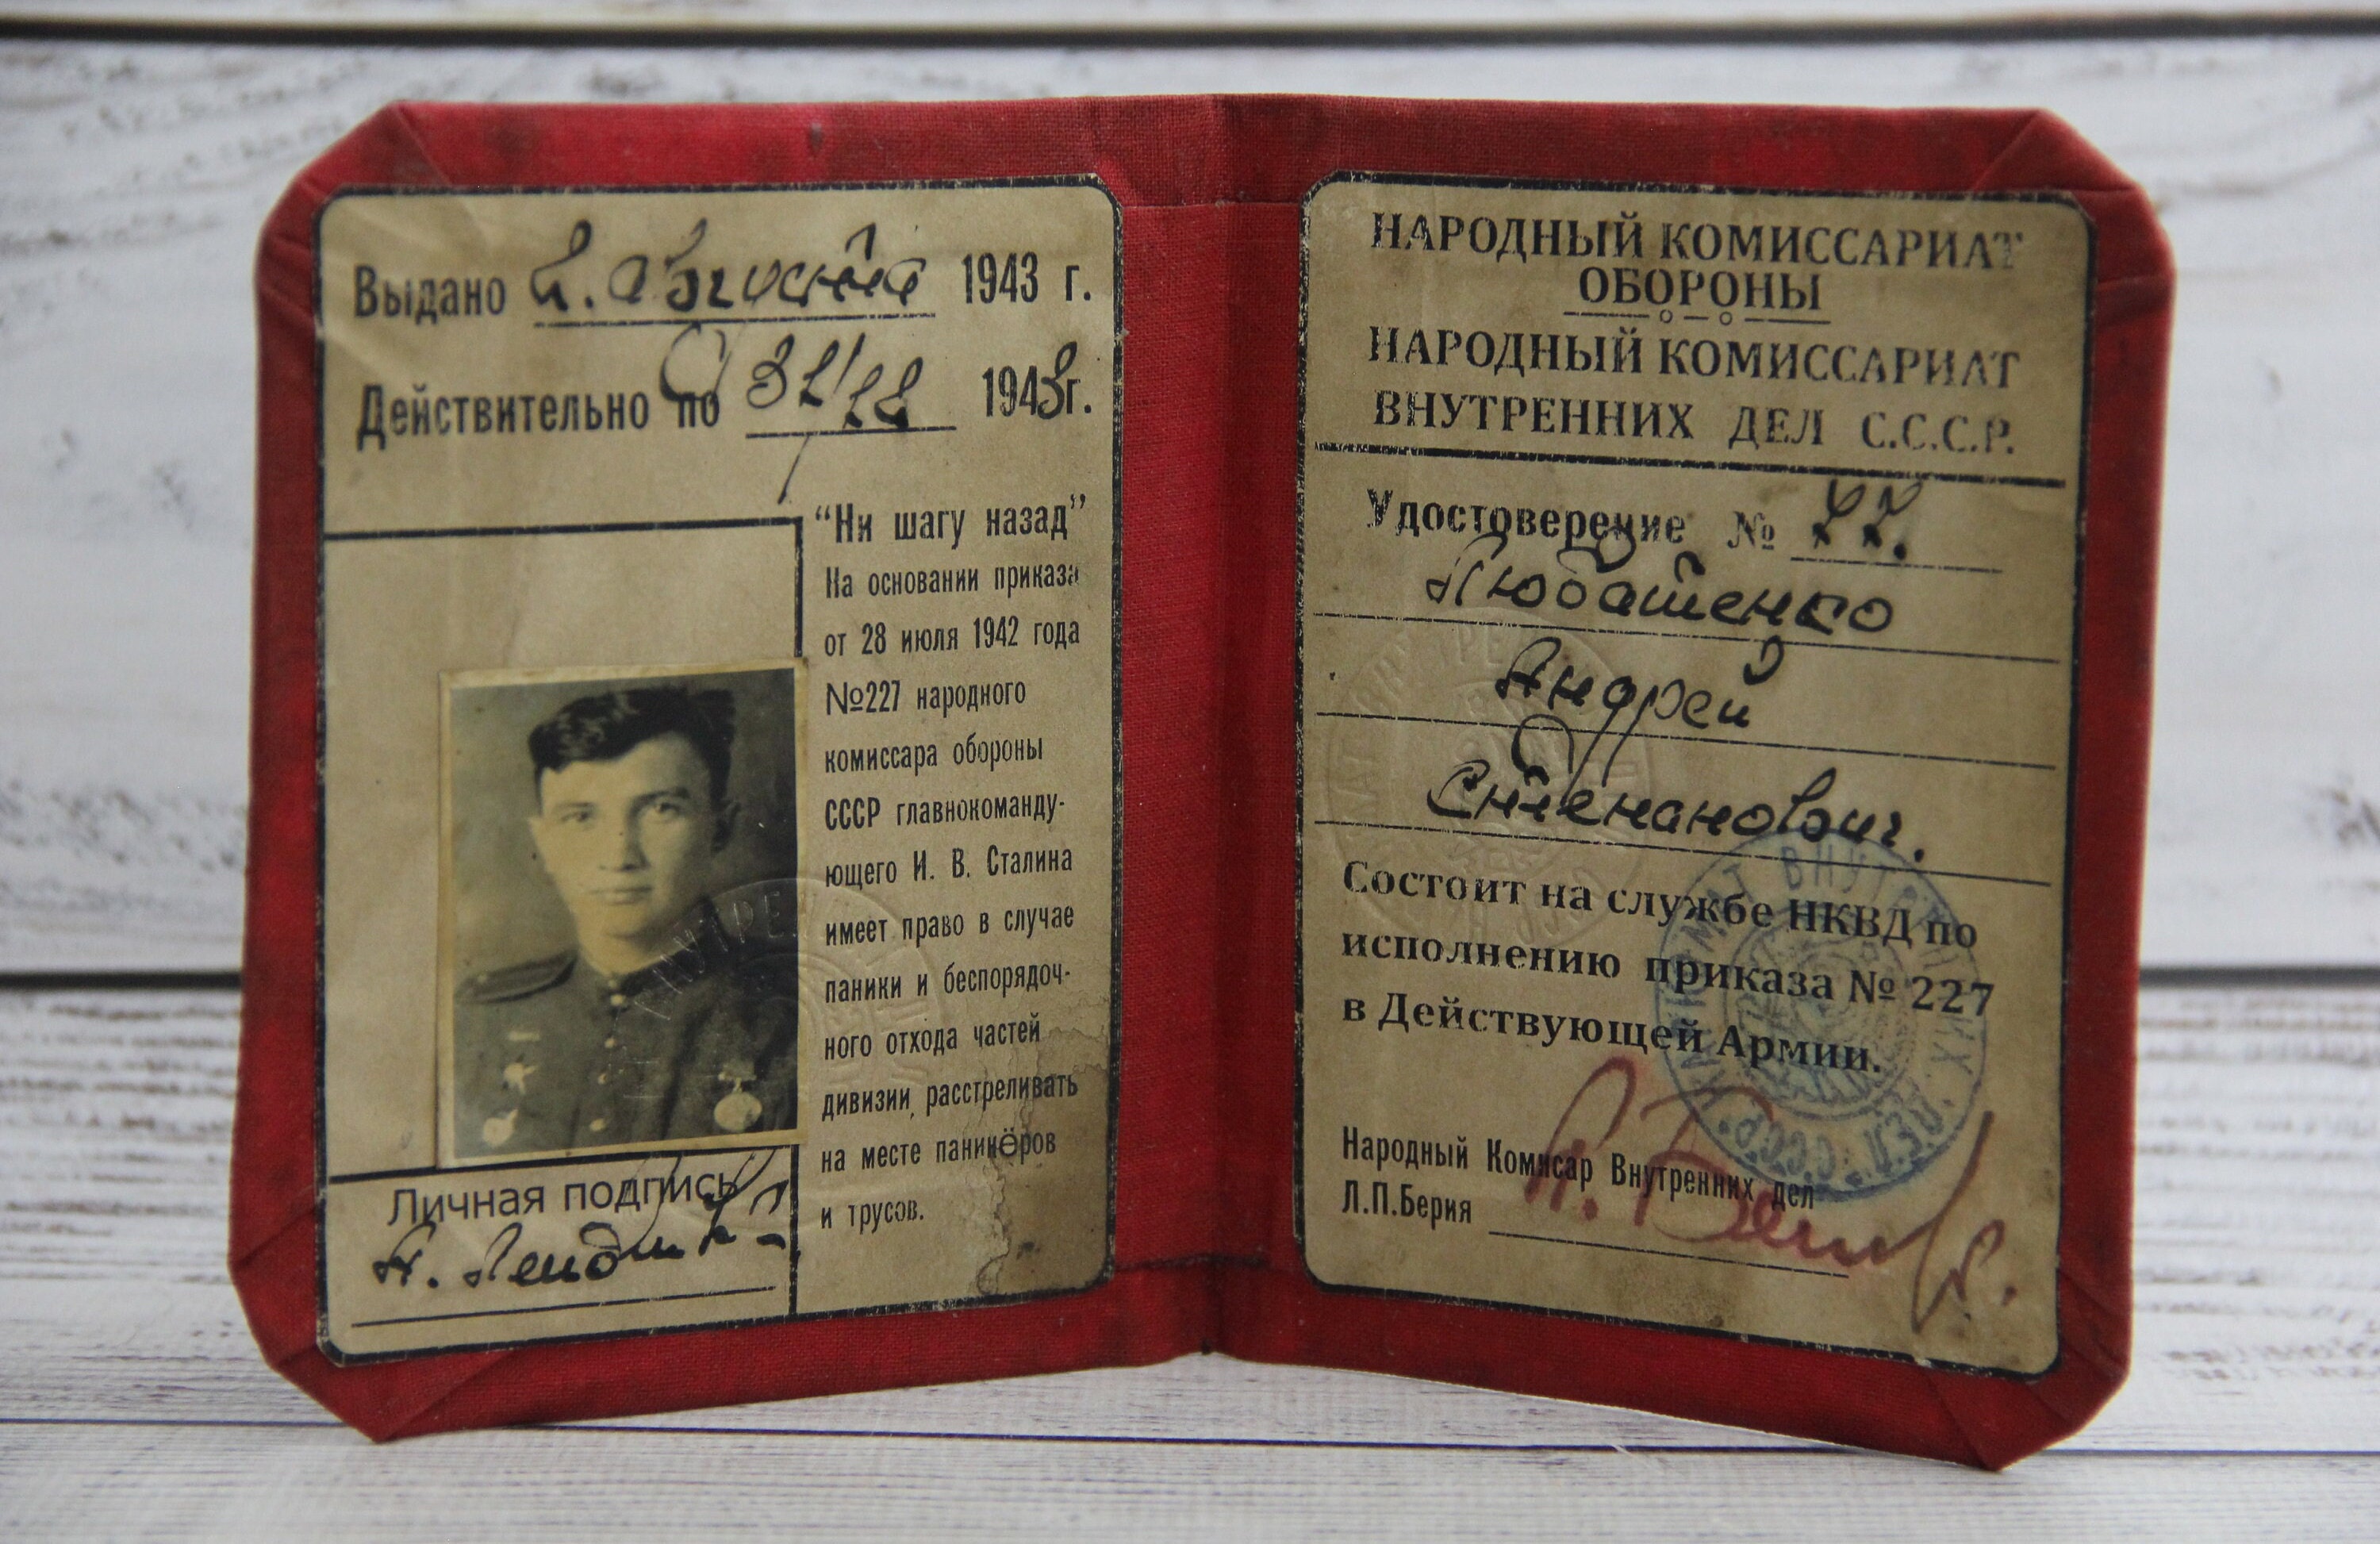 Выдано 1. августа 1943 г.
Действительно по 31/12 1943г.
“Ни шагу назад”
На основании приказа
от 28 июля 1942 года
№227 народного
комиссара обороны
СССР главнокоманду-
ющего И. В. Сталина
имеет право в случае
паники и беспорядоч-
ного отхода частей
дивизии расстреливать
на месте паникёров
и трусов.
Личная подпись
НАРОДНЫЙ КОМИССАРИАТ
ОБОРОНЫ
НАРОДНЫЙ КОМИССАРИАТ
ВНУТРЕННИХ ДЕЛ С.С.С.Р.
Удостоверение №
Любатенко
Андрей
Степанович.
Состоит на службе НКВД по
исполнению приказа № 227
в Действующей Армии.
Народный Комисар Внутренних дел
Л.П.Берия